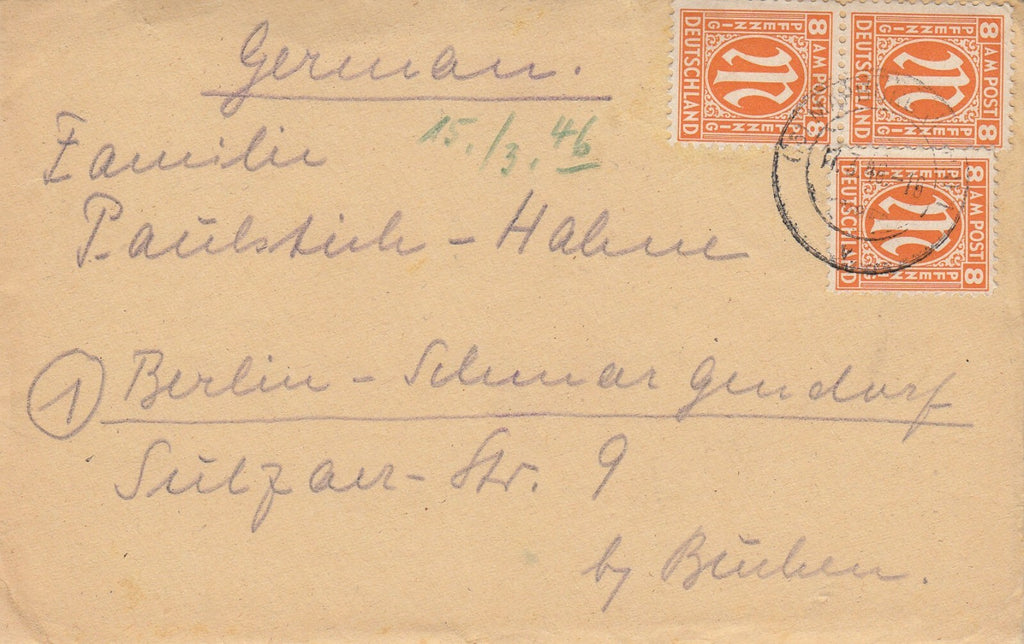 German.
15./3. 46
Familie
Paulstich - Hahne
① Berlin - Schmargendorf
Sulzaer - Str. 9
by Buchen.
8 AM POST 8
PFENNIG
PFENNIG
DEUTSCHLAND
M
8 AM POST 8
PFENNIG
PFENNIG
DEUTSCHLAND
M
8 AM POST 8
PFENNIG
PFENNIG
DEUTSCHLAND
M